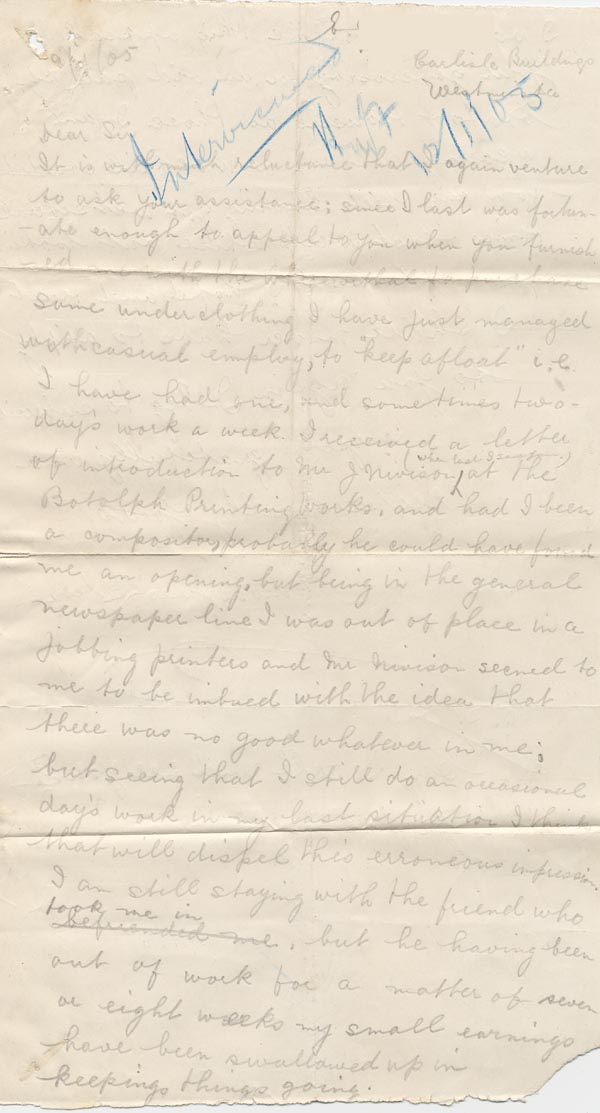 E.
9/1/05
Carlisle Buildings
Interviewed
12/1/05
Dear Sir
It is with much reluctance that I again venture
to ask your assistance; since I last was fortun-
-ate enough to appeal to you when you furnish
-ed me with the wherewithal to purchase
some underclothing I have just managed
with casual employ, to "keep afloat" i.e.
I have had one, and sometimes two-
day's work a week. I received a letter
(when last I saw you)
of introduction to Mr J Nivison, at the
Botolph Printing Works, and had I been
a compositor, probably he could have found
me an opening, but being in the general
newspaper line I was out of place in a
jobbing printers and Mr Nivison seemed to
me to be imbued with the idea that
there was no good whatever in me;
but seeing that I still do an occasional
day's work in my last situation I think
that will dispel this erroneous impression.
I am still staying with the friend who
took me in
befriended me, but he having been
out of work for a matter of seven
or eight weeks my small earnings
have been swallowed up in
keepings things going.